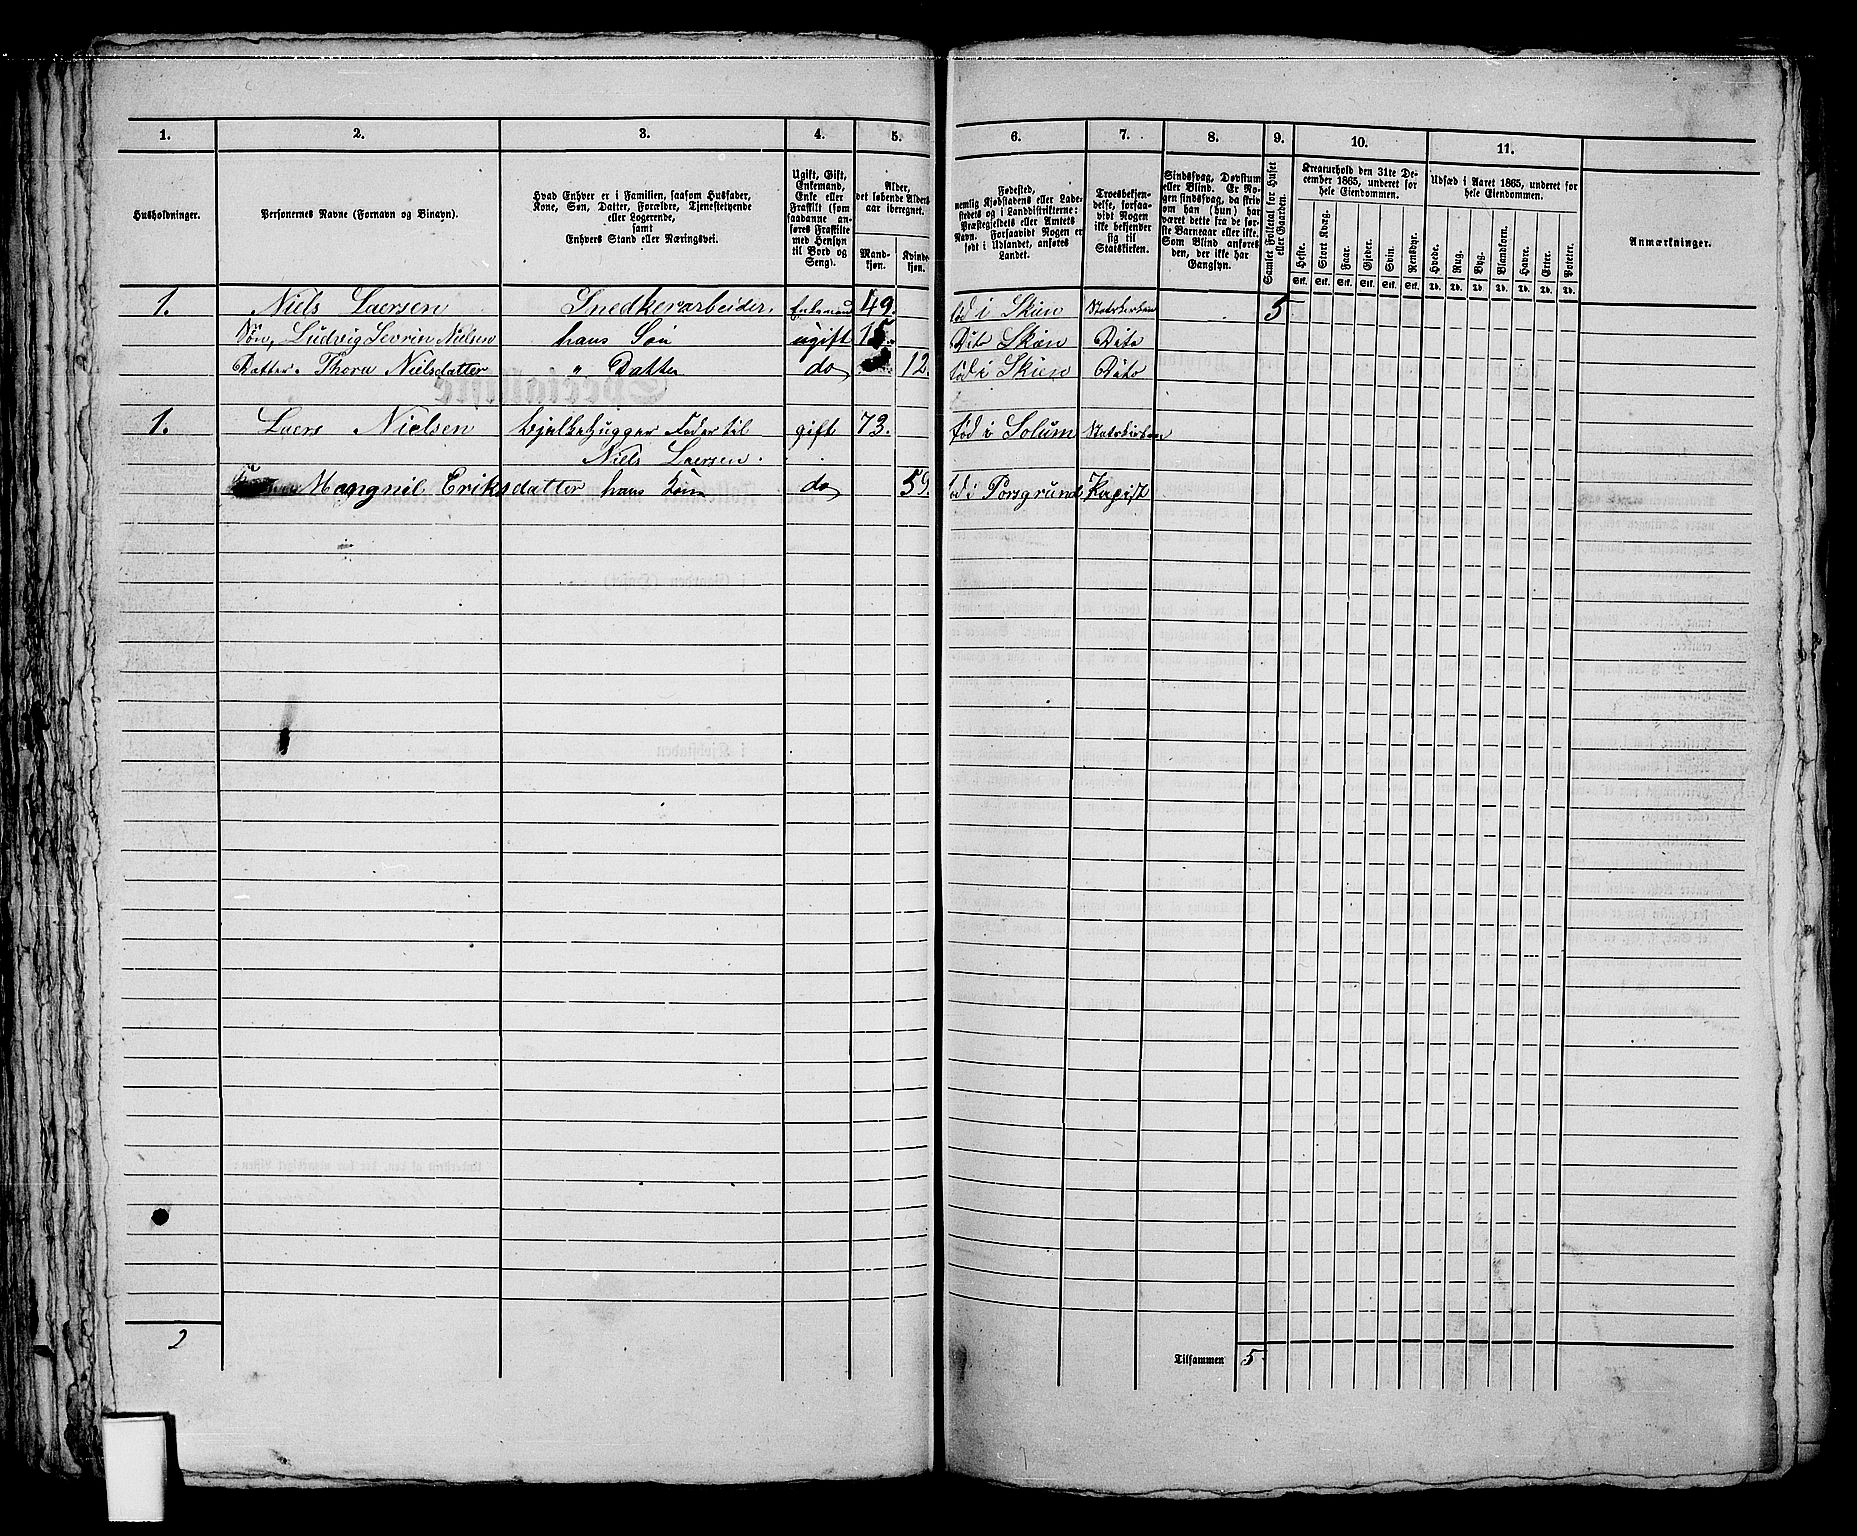 1. 2. 3. 4. 5. 6. 7. 8. 9. 10. 11.
Husholdninger.
Personernes Navne (Fornavn og Binavn).
Hvad Enhver er i Familien, saasom Husfader,
Kone, Søn, Datter, Forældre, Tjenestetyende
eller Logerende,
samt
Enhvers Stand eller Næringsvei.
Ugift, Gift,
Enkemand,
Enke eller
Fraskilt (som
saadanne an-
føres Fraskilte
med Hensyn
til Bord og
Seng).
Alder,
det løbende Alders-
aar iberegnet.
Mand-
kjøn.
Kvinde-
kjøn.
Fødested,
nemlig Kjøbstadens eller Lade-
stedets og i Landdistrikterne:
Præstegjeldets eller Amtets
Navn. Forsaavidt Nogen er
født i Udlandet, anføres
Landet.
Troesbekjen-
delse, forsaa-
vidt Nogen
ikke bekjender
sig til
Statskirken.
Sindssvag, Døvstum
eller Blind. Er No-
gen sindssvag, da skriv
om han (hun) har
været dette fra de før-
ste Barneaar eller ikke.
Som Blind anføres
den, der ikke har
Gangsyn.
Samlet Folketal for Huset
eller Gaarden.
Kreaturhold den 31te De-
cember 1865, underet for
hele Eiendommen.
Heste. Stort Kvæg. Faar. Gjeder. Svin. Rensdyr.
Stk. Stk. Stk. Stk. Stk. Stk.
Udsæd i Aaret 1865, underet for
hele Eiendommen.
Hvede. Rug. Byg. Blandkorn. Havre. Erter. Poteter.
Td. Td. Td. Td. Td. Td. Td.
Anmærkninger.
1. Niels Laersen Snedkerarbeider, Enkemand 49. fød i Skien Statskirken 5
Søn, Ludvig Sevrin Nielsen hans Søn ugift 15. Dito Skien Dito
Datter. Thora Nielsdatter " Datter do 12. fød i Skien Dito
1. Laers Nielsen bjelkehugger Fader til gift 73. fød i Solum Statskirken
Niels Laersen.
Mangnil Eriksdatter hans do 59. fød i Porsgrund
2
Tilsammen 5.